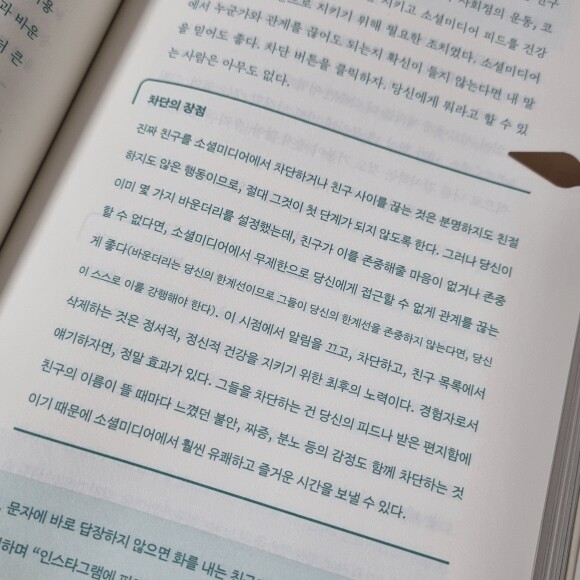 사회정의 운동, 코
으로 지키기 위해 필요한 조치였다. 소셜미디어
에서 누군가와 관계를 끊어도 되는지 확신이 들지 않는다면 내 말
을 믿어도 좋다. 차단 버튼을 클릭하자. 당신에게 뭐라고 할 수 있
는 사람은 아무도 없다.
차단의 장점
진짜 친구를 소셜미디어에서 차단하거나 친구 사이를 끊는 것은 분명하지도 친절
하지도 않은 행동이므로, 절대 그것이 첫 단계가 되지 않도록 한다. 그러나 당신이
이미 몇 가지 바운더리를 설정했는데, 친구가 이를 존중해줄 마음이 없거나 존중
할 수 없다면, 소셜미디어에서 무제한으로 당신에게 접근할 수 없게 관계를 끊는
게 좋다(바운더리는 당신의 한계선이므로 그들이 당신의 한계선을 존중하지 않는다면, 당신
이 스스로 이를 강행해야 한다). 이 시점에서 알림을 끄고, 차단하고, 친구 목록에서
삭제하는 것은 정서적, 정신적 건강을 지키기 위한 최후의 노력이다. 경험자로서
얘기하자면, 정말 효과가 있다. 그들을 차단하는 건 당신의 피드나 받은 편지함에
친구의 이름이 뜰 때마다 느꼈던 불안, 짜증, 분노 등의 감정도 함께 차단하는 것
이기 때문에 소셜미디어에서 훨씬 유쾌하고 즐거운 시간을 보낼 수 있다.
문자에 바로 답장하지 않으면 화를 내는
하며 “인스타그램에